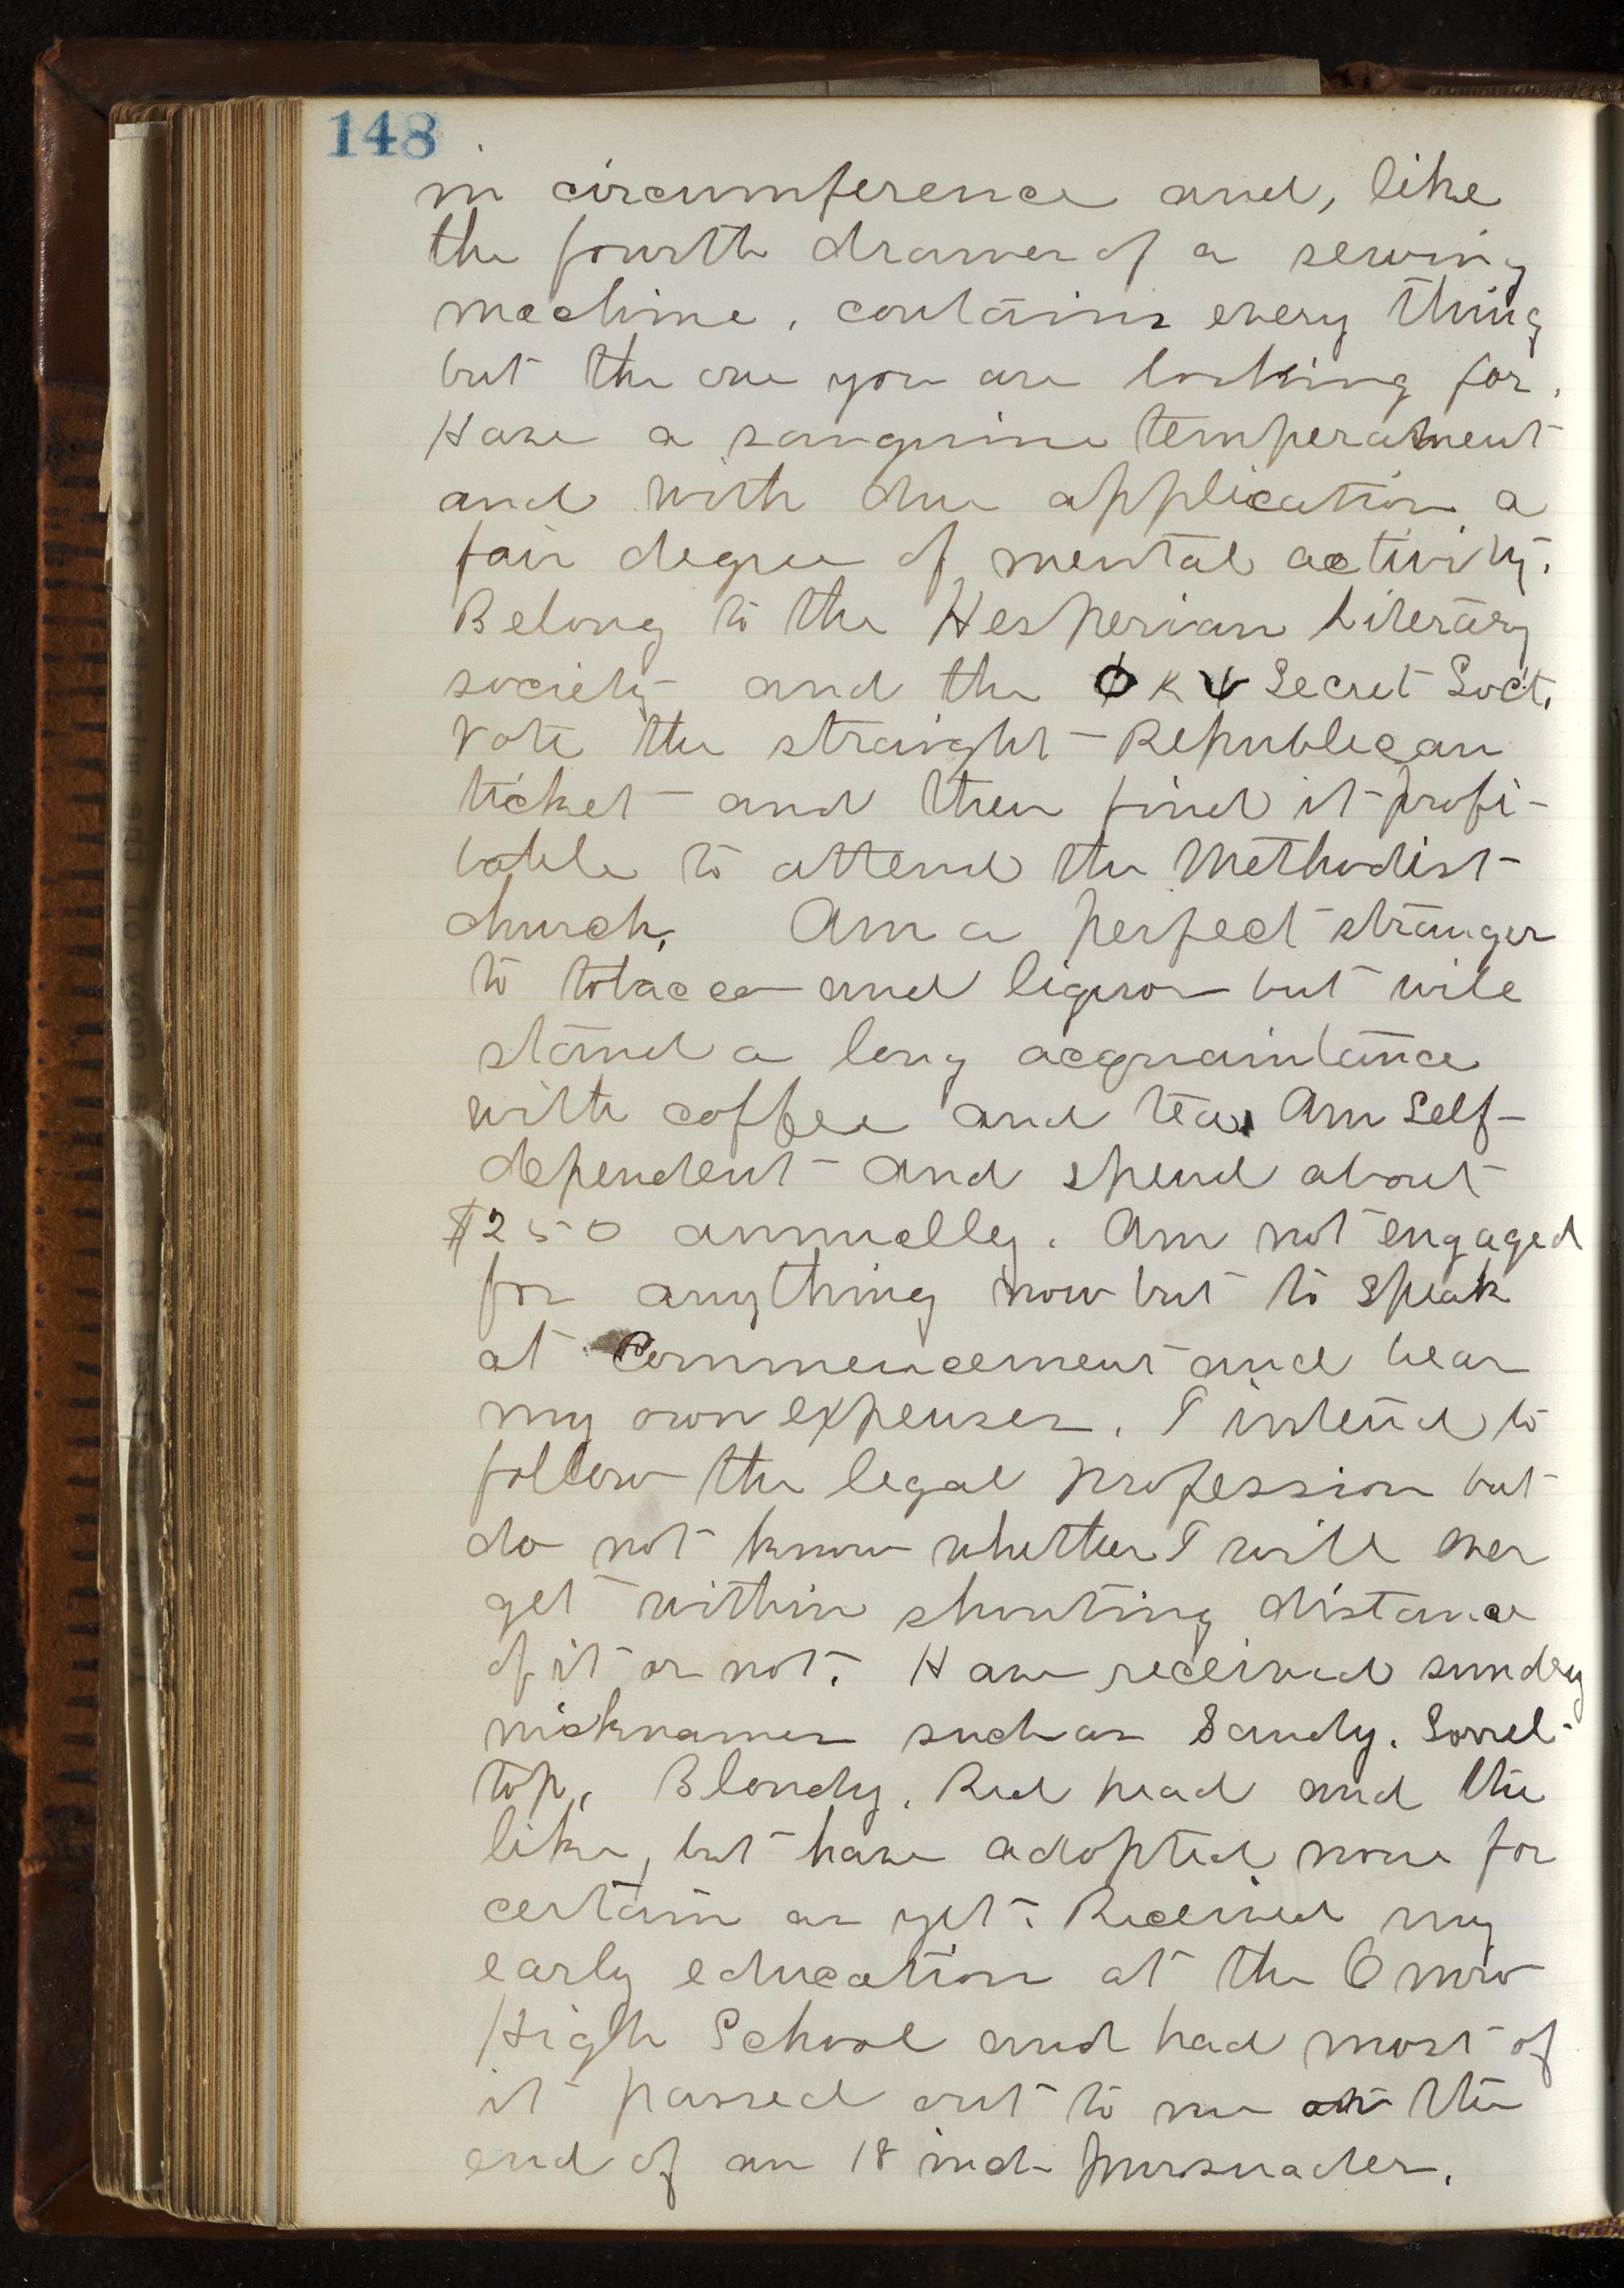 148
in circumference and, like
the fourth drawer of a sewing
machine, contains every thing
but the one you are looking for.
Have a sanguine temperament
and with due application a
fair degree of mental activity.
Belong to the Hesperian Literary
society and the ΦΚΨ Secret Soct.
Vote the straight Republican
ticket and then find it profi-
table to attend the Methodist
church. Am a perfect stranger
to tobacco and liquor but will
stand a long acquaintance
with coffee and tea. Am Self-
dependent and spend about
$250 annually. Am not engaged
for anything now but to speak
at Commencement and bear
my own expenses. I intend to
follow the legal profession but
do not know whether I will ever
get within shouting distance
of it or not. Have received sundry
nicknames such as Sandy, Sorrel-
top, Blondy, Red head and the
like, but have adopted none for
certain as yet. Received my
early education at the Omro
High School and had most of
it passed out to me on the
end of an 18 inch pursuader.